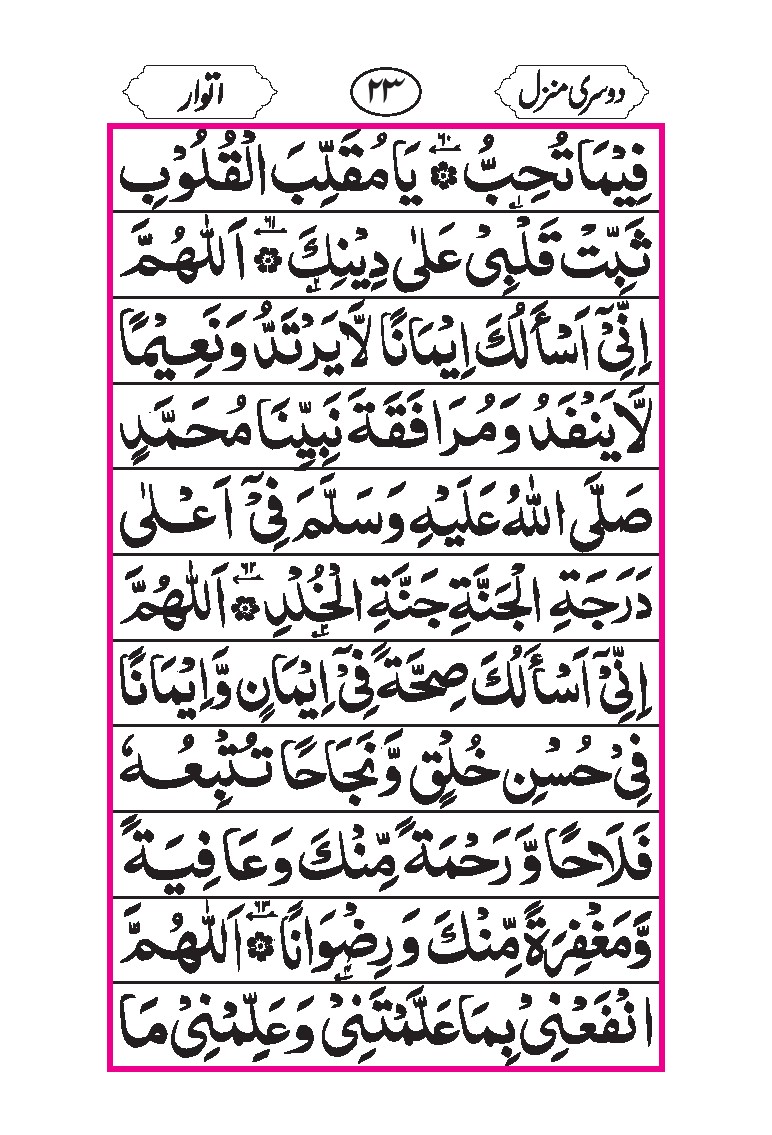 دوسری منزل ٢٣ اتوار
فِيْمَا تُحِبُّ ۞ ٦٠ يَا مُقَلِّبَ الْقُلُوْبِ
ثَبِّتْ قَلْبِيْ عَلٰى دِيْنِكَ ۞ ٦١ اَللّٰهُمَّ
اِنِّيْٓ اَسْأَلُكَ اِيْمَانًا لَّا يَرْتَدُّ وَنَعِيْمًا
لَّا يَنْفَدُ وَمُرَافَقَةَ نَبِيِّنَا مُحَمَّدٍ
صَلَّى اللّٰهُ عَلَيْهِ وَسَلَّمَ فِيْٓ اَعْلٰى
دَرَجَةِ الْجَنَّةِ جَنَّةِ الْخُلْدِ ۞ ٦٢ اَللّٰهُمَّ
اِنِّيْٓ اَسْأَلُكَ صِحَّةً فِيْٓ اِيْمَانٍ وَّاِيْمَانًا
فِيْ حُسْنِ خُلْقٍ وَّنَجَاحًا تُتْبِعُهٗ
فَلَاحًا وَّرَحْمَةً مِّنْكَ وَعَافِيَةً
وَّمَغْفِرَةً مِّنْكَ وَرِضْوَانًا ۞ ٦٣ اَللّٰهُمَّ
انْفَعْنِيْ بِمَا عَلَّمْتَنِيْ وَعَلِّمْنِيْ مَا